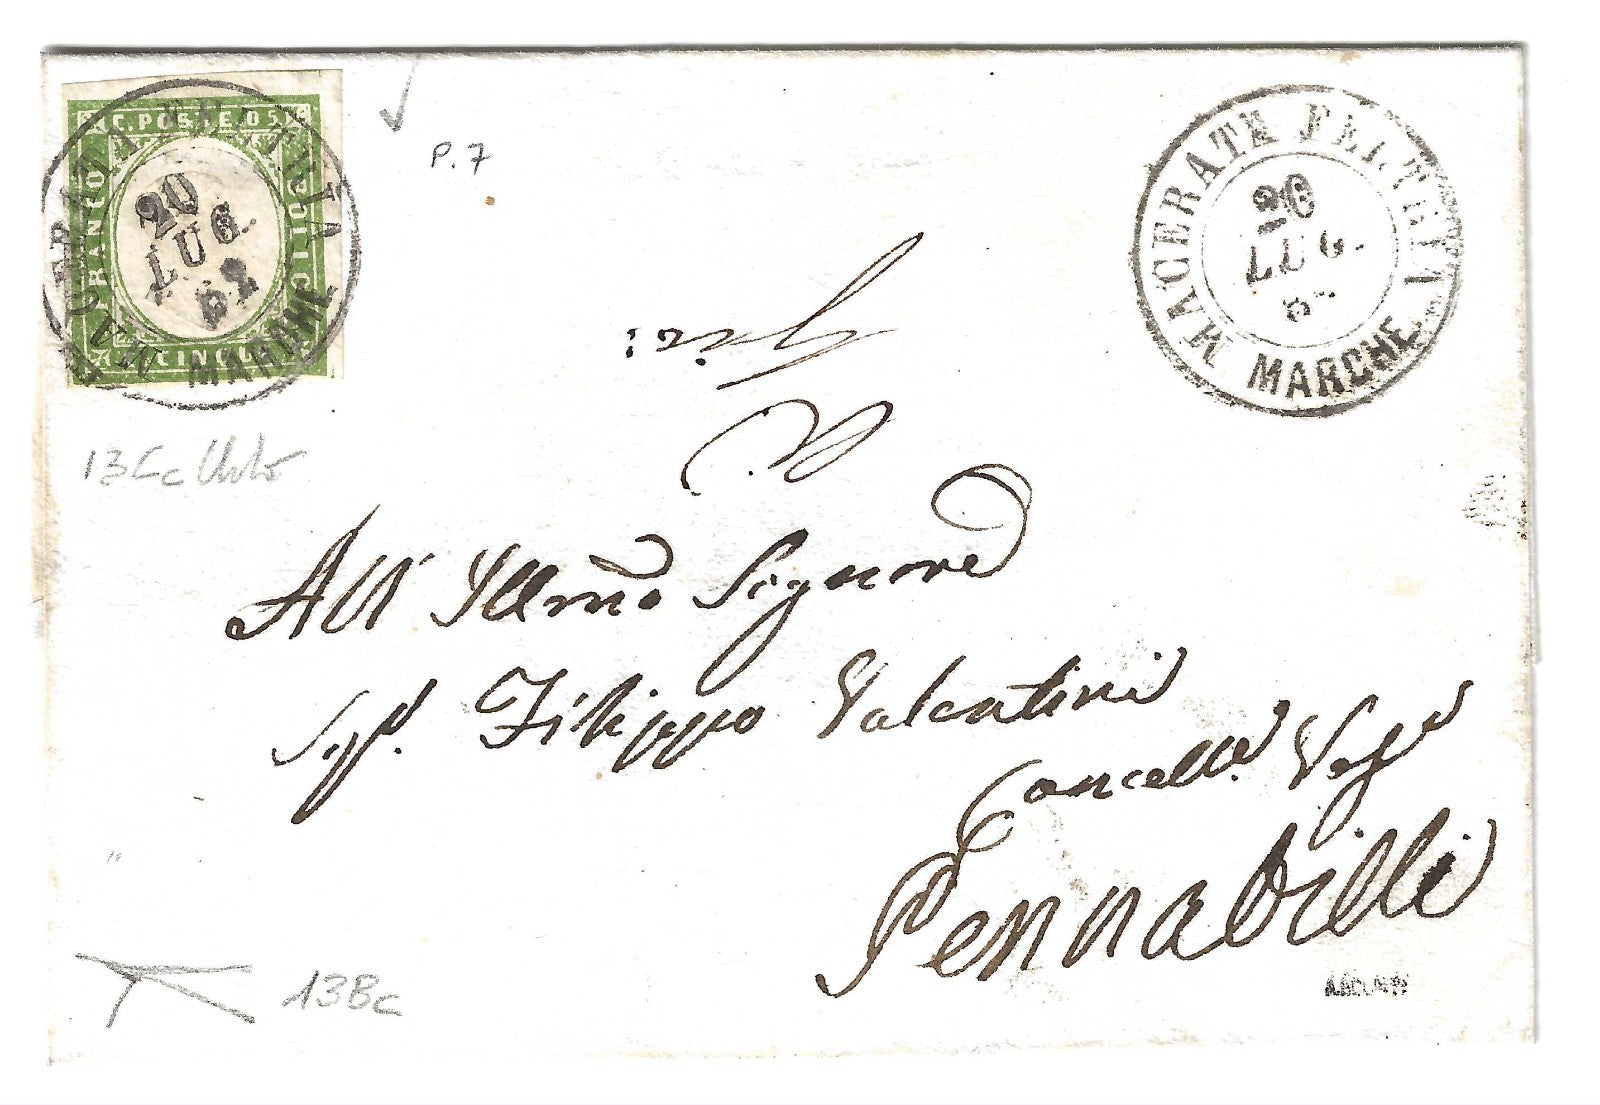 C. POSTE 05
FRANCO
BOLLO
C. CINQUE
MACERATA FELTRIA
20
LUG.
62
MARCHE
MACERATA FELTRIA
20
LUG.
6
MARCHE
P.7
13Cc
All' Illmo Signore
Sigr. Filippo Valentini
Cancelle.
Pennabilli
13Bc